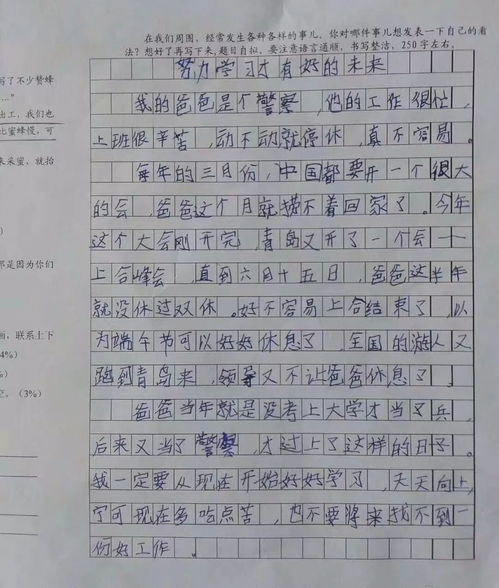 在我们周围，经常发生各种各样的事儿。你对哪件事儿想发表一下自己的看
法？想好了再写下来，题目自拟。要注意语言通顺，书写整洁，250字左右。
努力学习才有好的未来
我的爸爸是个警察，他的工作很忙，
上班很辛苦，动不动就停休，真不容易。
每年的三月份，中国都要开一个很大
的会，爸爸这个月就捞不着回家了。今年
这个大会刚开完，青岛又开了一个会——
上合峰会，直到六月十五日，爸爸这半年
就没休过双休。好不容易上合结束了，以
为端午节可以好好休息了，全国的游人又
跑到青岛来，领导又不让爸爸休息了。
爸爸当年就是没考上大学才当了兵，
后来又当了警察，才过上了这样的日子。
我一定要从现在开始好好学习，天天向上，
宁可现在多吃点苦，也不要将来找不到一
份好工作。
写了不少赞蜂
出工，我们也
比蜜蜂慢，可
来采蜜，就抬
那是因为你们
画，联系上下
4%）
%）
（3%）